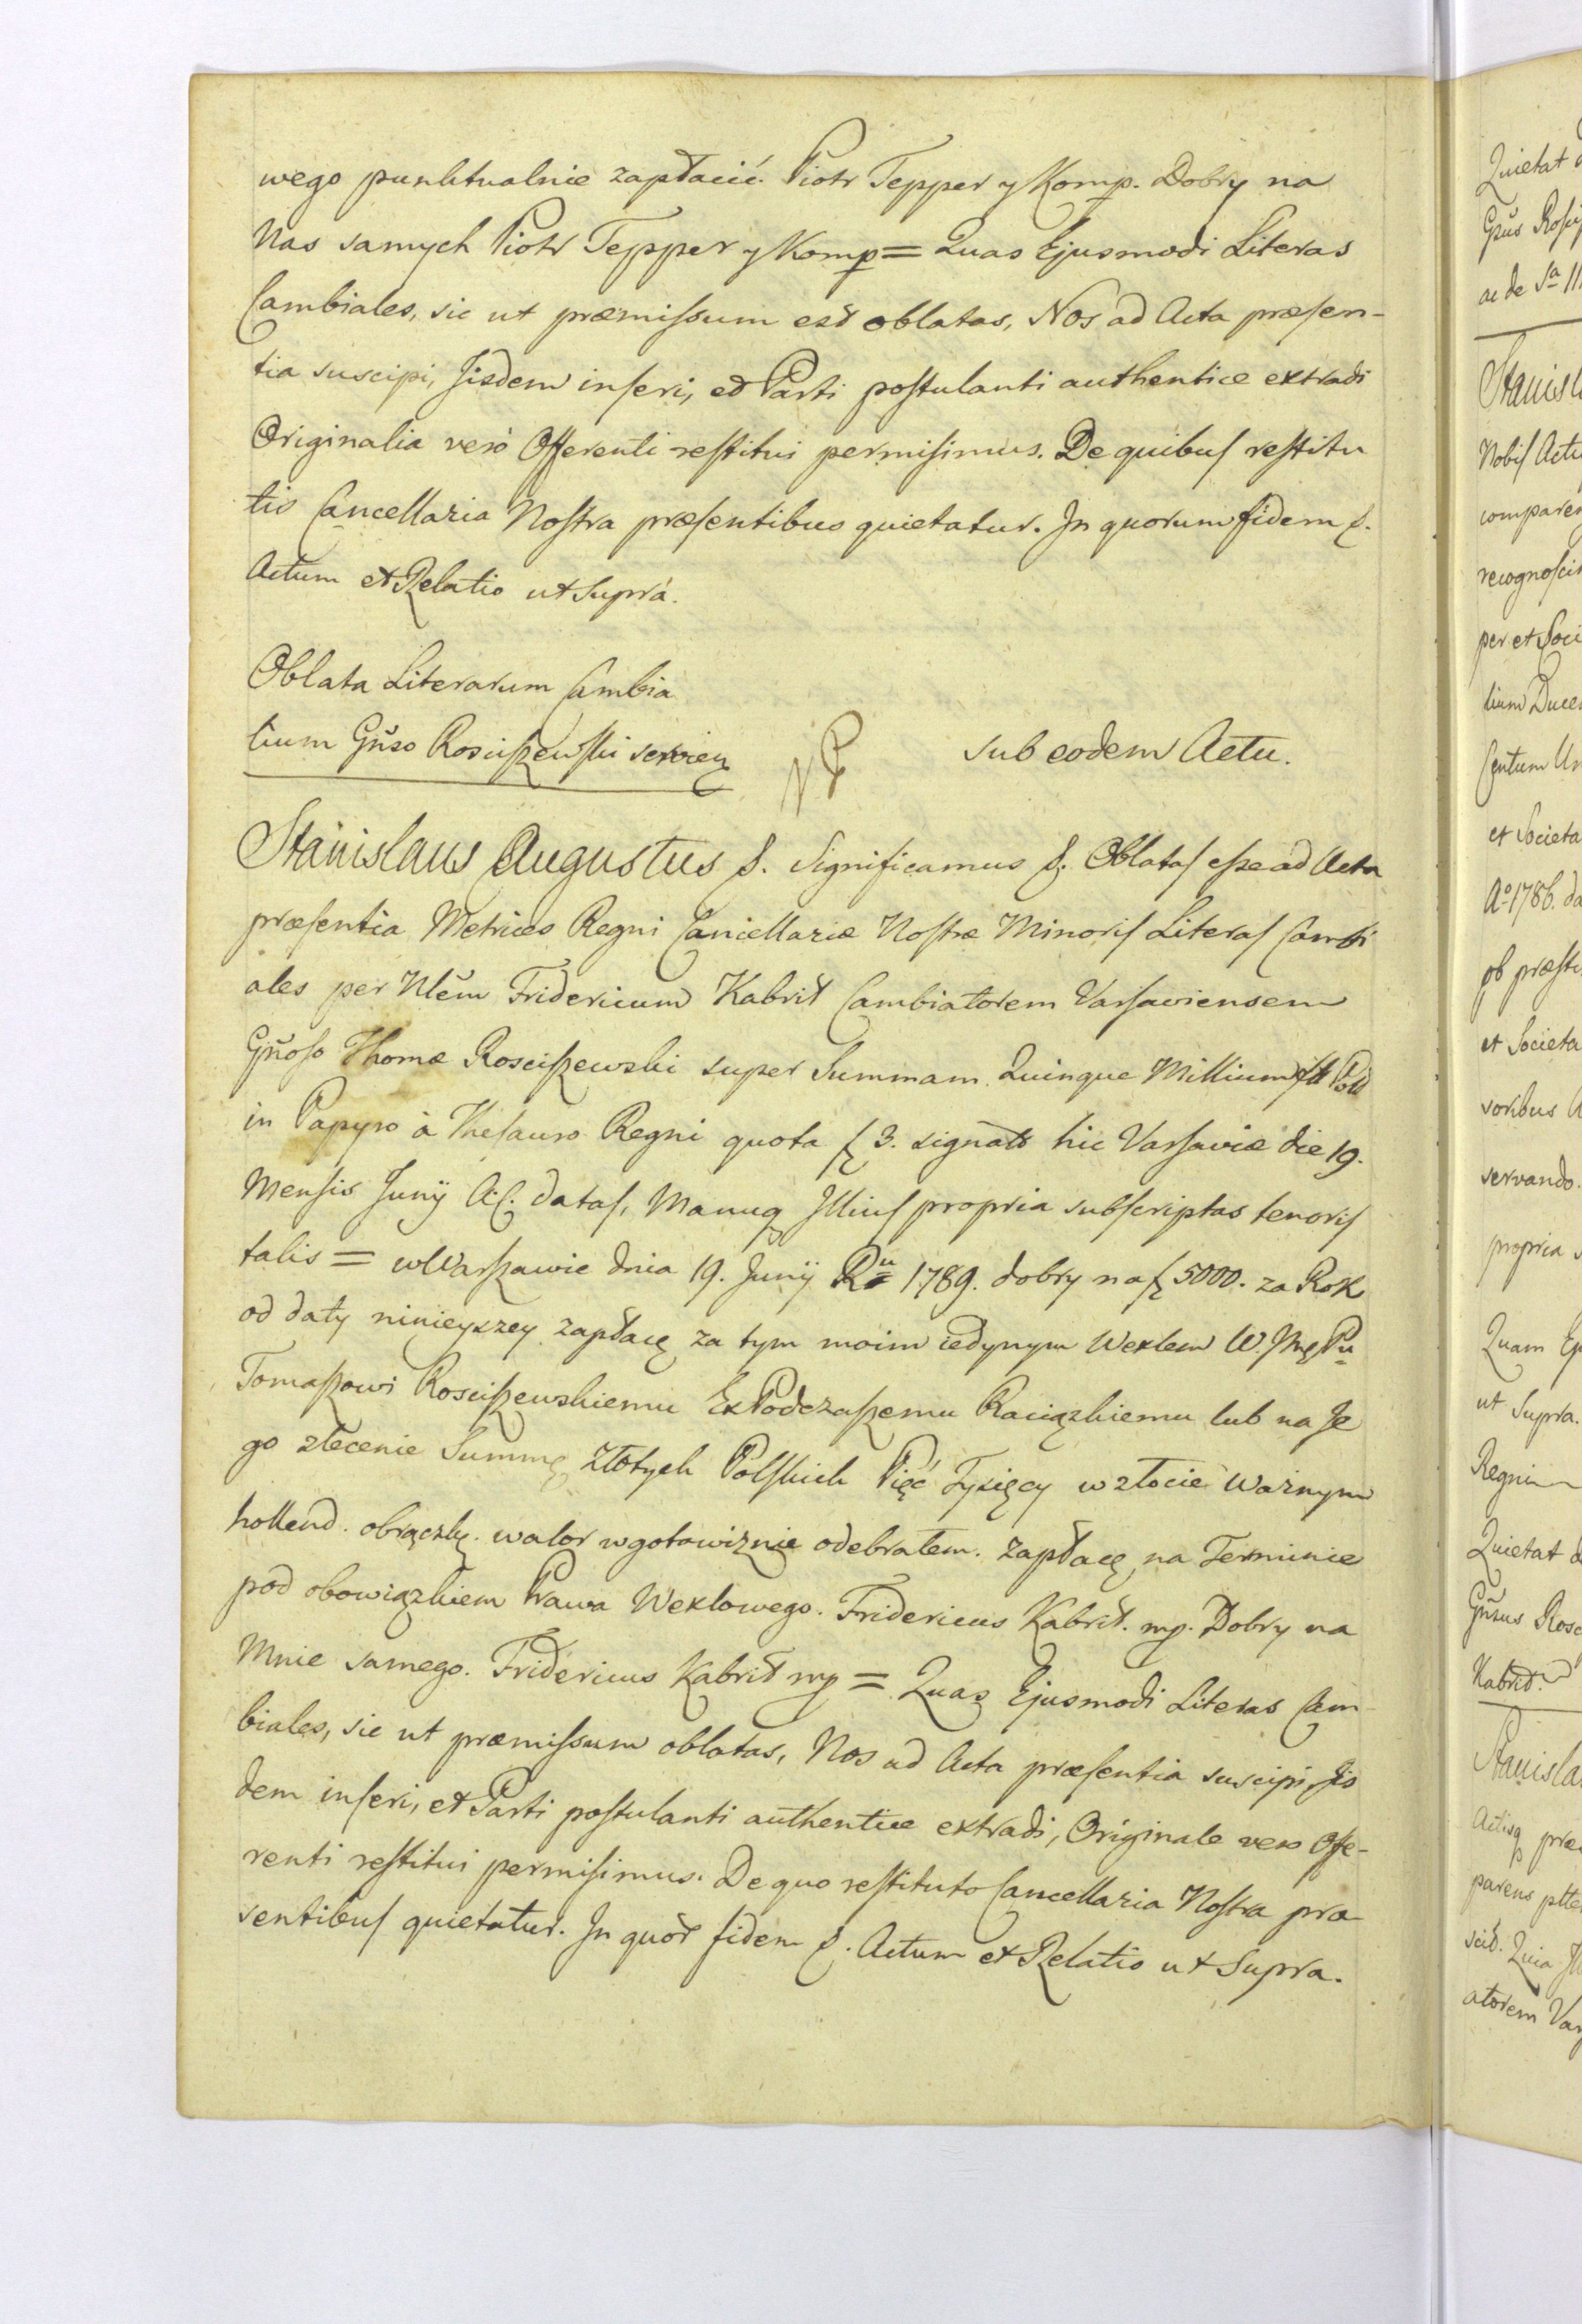 wego punktualnie zapłacić. Piotr Tepper y Komp. Dobry na
Nas samych Piotr Tepper y Komp = Quas Ejusmodi Literas
Cambiales, sic ut præmiſsum est oblatas, Nos ad Acta præſen-
tia suscipi, Jisdem inſeri, et Parti poſtulanti authentice extradi
Originalia verò Offerenti reſtitui permiſimus. De quibuſ reſtitu
tis Cancellaria Noſtra præſentibus quietatur. Jn quorum fidem &.
Actum et Relatio ut Suprà.
Oblata Literarum Cambia
lium Gńso Rosciſzewſki servien
sub eodem Actu.
Stanislaus Augustus &. Significamus &. Oblataſ eſse ad Acta
præſentia Metrices Regni Cancellariæ Noſtræ Minoriſ Literaſ Cambi
ales per Nlem Fridericum Kabrit Cambiatorem Varſaviensem
Gnoſo Thomæ Rosciſzewski super Summam Quinque Millium flł Poll
in Papyro à Theſauro Regni quota f 3. signato hic Varſaviæ die 19.
Menſis Junij A. C. dataſ, Manuq Jlliuſ propria subſcriptas tenoriſ
talis = w Warſzawie dnia 19. Junij Ru 1789. dobry na f 5000. za Rok
od daty ninieyszey zapłacę za tym moim iedynym Wexlem W. Jmę Pu
Tomaſzowi Rosciſzewskiemu ExPodczaſzemu Raciązkiemu lub na Je
go zlecenie Summę Złotych Polſkich Pięć Tyſięcy w złocie ważnym
hollend. obrączk. walor w gotowiznie odebrałem. zapłacę na Terminie
pod obowiązkiem Prawa Wexlowego. Fridericus Kabrit. mp. Dobry na
Mnie samego. Fridericus Kabrit mp = Quas Ejusmodi Literas Cam-
biales, sic ut præmiſsum oblatas, Nos ad Acta præſentia suscipi, Jis
dem inſeri, et Parti poſtulanti authentice extradi, Originale vero Offe-
renti reſtitui permiſimus. De quo reſtituto Cancellaria Noſtra præ
sentibuſ quietatur. Jn quor fidem &. Actum et Relatio ut Supra.
Quietat
ac de Sa
Nobiſ Actu
per et Soci
Centum
et Societa
Ao 1786. da
ob præſt
et Societa
servando.
propria
ut Supra.
Regni
Quietat
Kabrit.